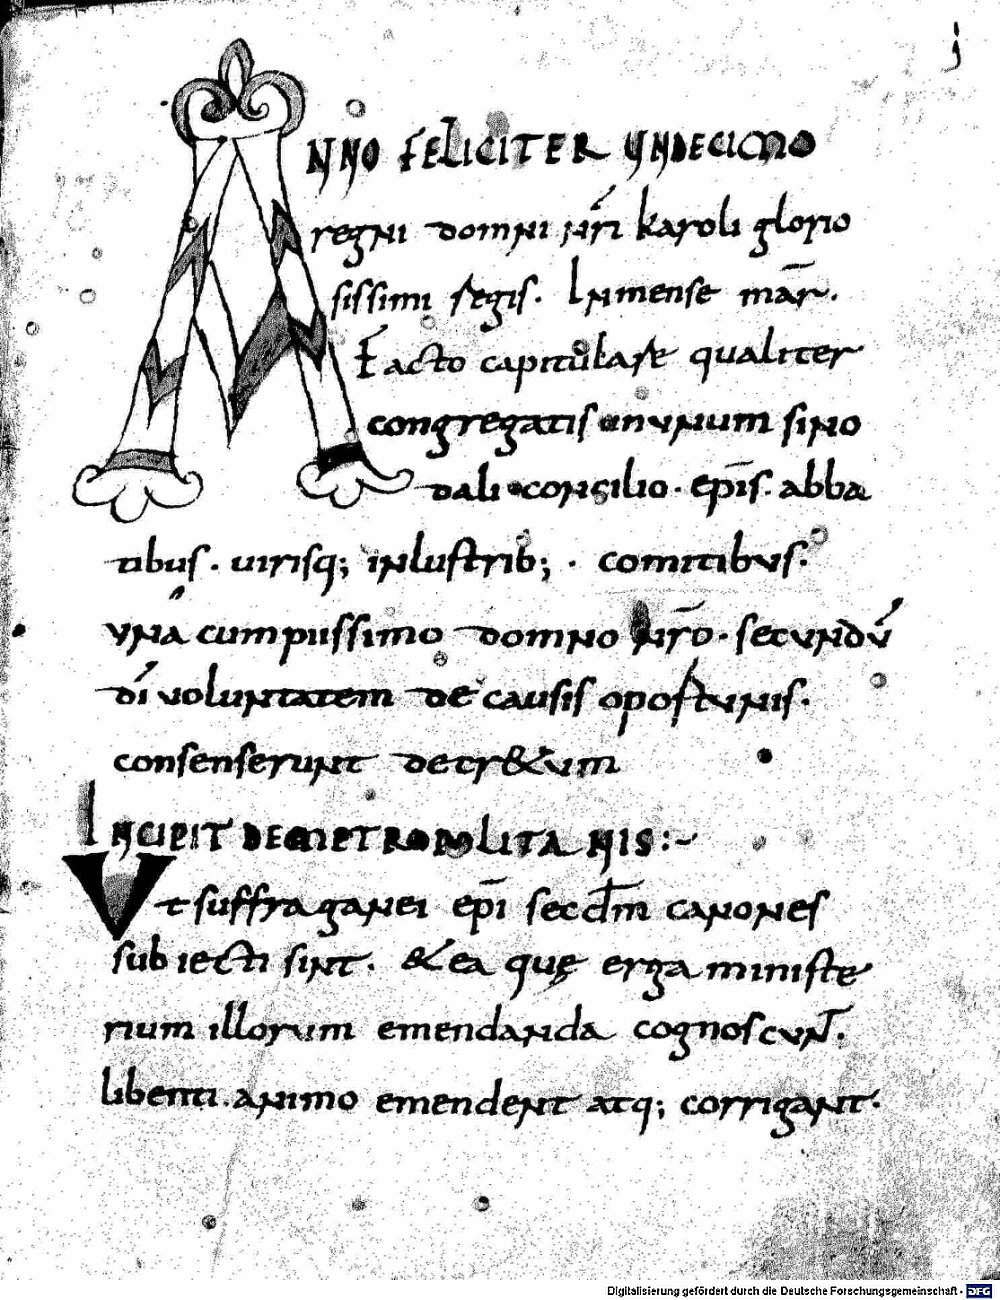 j
ANNO FELICITER UNDECIMO
regni domni nr̄i karoli glorio
sissimi regis. In mense mar̄.
Facto capitulare qualiter
congregatis in unum sino
dali concilio. ep̄is. abba
tibus. uirisq; inlustrib; . comitibus.
una cum piissimo domno nr̄o. secundū
dī uoluntatem de causis oportunis.
consenserunt decr&um
INCIPIT DE METROPOLITANIS:~
Ut suffraganei ep̄i secd̄m canones
subiecti sint. & ea quę erga ministe
rium illorum emendanda cognoscun̄t.
libenti. animo emendent atq; corrigant.
Digitalisierung gefördert durch die Deutsche Forschungsgemeinschaft - DFG